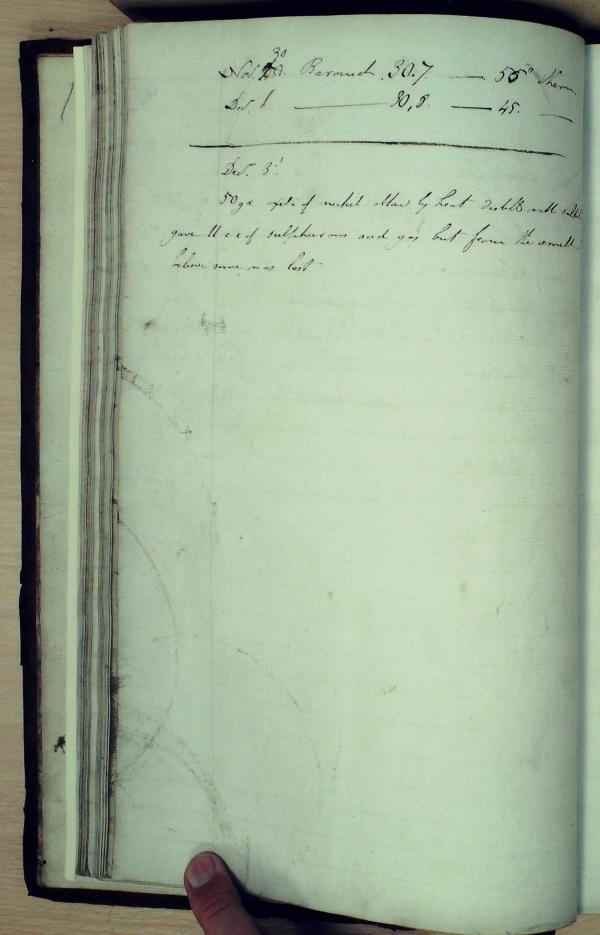 Nov. 30 Baromet. 30.7 — 55° Therm.
Dec. 1 — 30,8. — 45. —
Dec. 3d
50 gr. oxide of nickel obtd by heat distilld with sulph
gave 11 c c of sulphurous acid gas but from the smell
believe some was lost